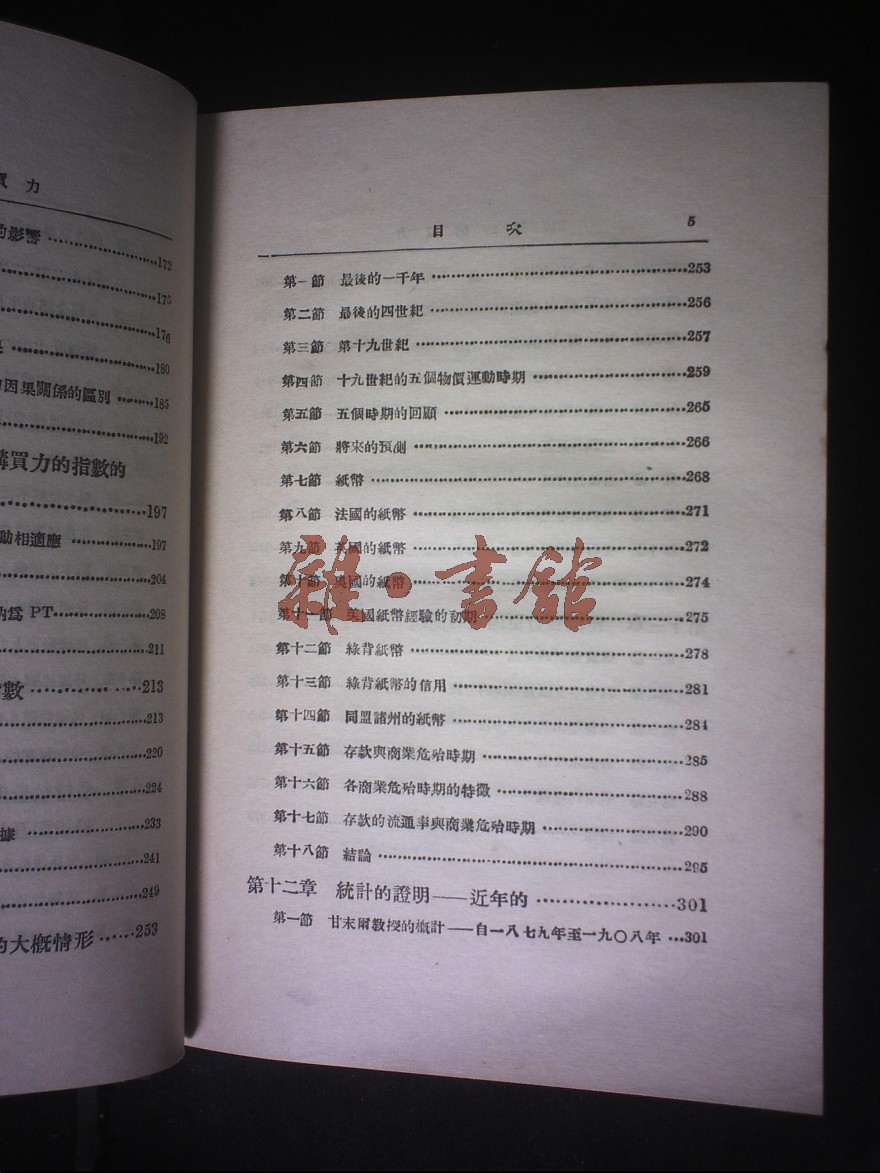 買力
的影響 172
175
176
180
因果關係的區別 185
192
購買力的指數的
197
動相適應 197
204
為 PT 208
211
數 213
213
220
224
據 233
241
249
的大概情形 253
目 次 5
第一節 最後的一千年 253
第二節 最後的四世紀 256
第三節 第十九世紀 257
第四節 十九世紀的五個物價運動時期 259
第五節 五個時期的回顧 265
第六節 將來的預測 266
第七節 紙幣 268
第八節 法國的紙幣 271
第九節 英國的紙幣 272
第十節 奧國的紙幣 274
第十一節 美國紙幣經驗的初期 275
第十二節 綠背紙幣 278
第十三節 綠背紙幣的信用 281
第十四節 同盟諸州的紙幣 284
第十五節 存款與商業危殆時期 285
第十六節 各商業危殆時期的特徵 288
第十七節 存款的流通率與商業危殆時期 290
第十八節 結論 295
第十二章 統計的證明——近年的 301
第一節 甘末爾敎授的概計——自一八七九年至一九〇八年 301
雜·書館